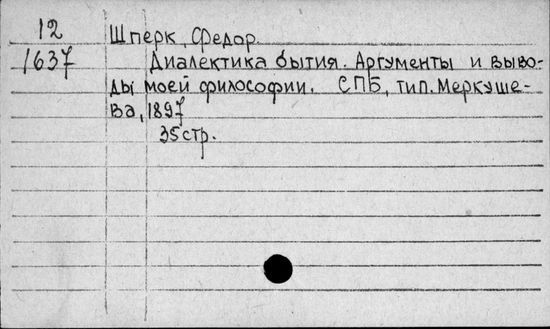 12
1637
Шперк, Федор.
Диалектика бытия. Аргументы и выво-
ды моей философии. СПБ, тип. Меркуше-
ва, 1897
35 стр.